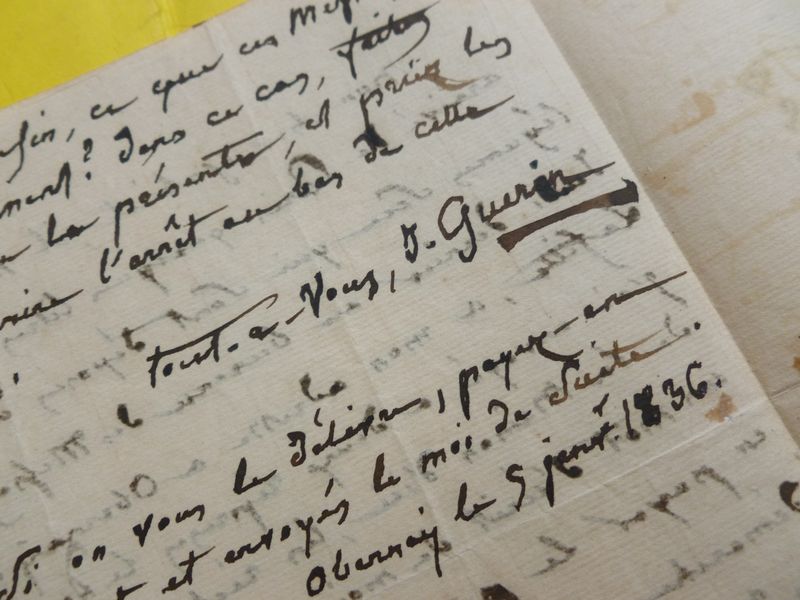 ce que ces
? Dans ce cas, faites
la présente, et priez les
l'arrêt au bas de cette
tout-à-Vous, J. Guerin
Si on vous le délivre, payez-en
et envoyés le moi de suite.
Obernay le 9 janvr. 1836.